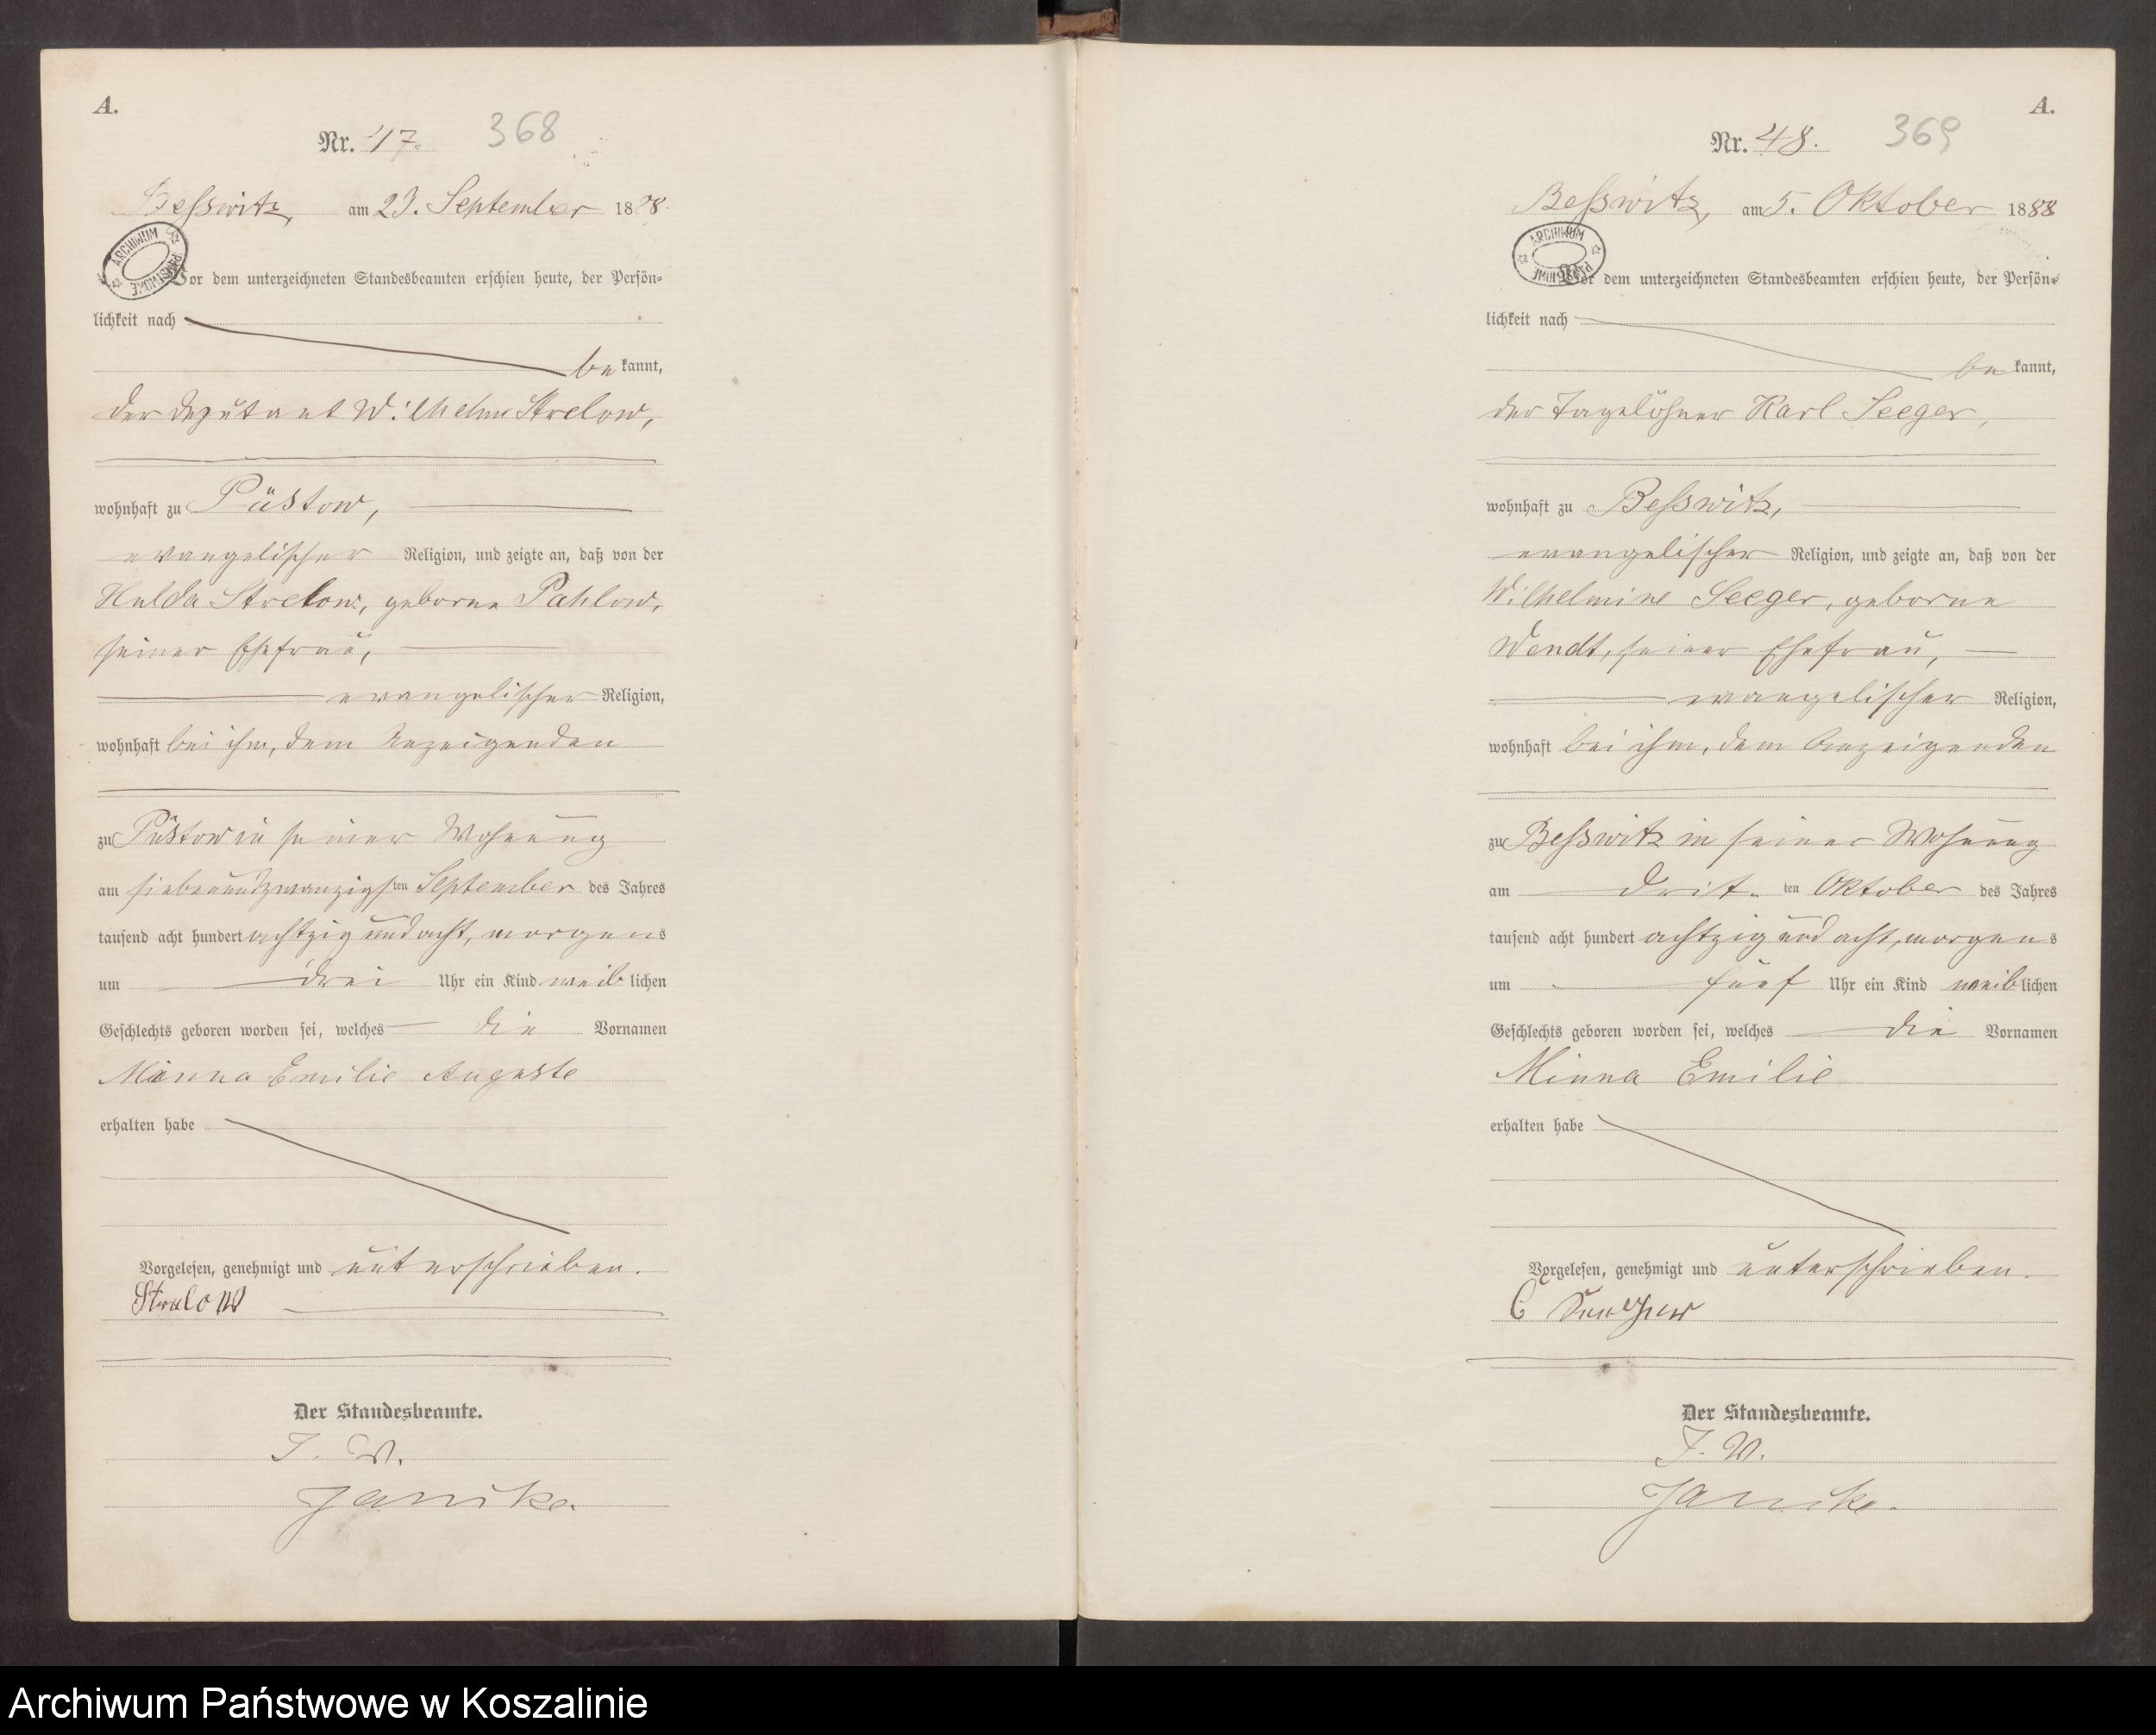 A.
Nr. 47. 368
Besswitz, am 29. September 1888.
ARCHIWUM PAŃSTWOWE
Vor dem unterzeichneten Standesbeamten erschien heute, der Persön-
lichkeit nach
be kannt,
der Deputant Wilhelm Strelow,
wohnhaft zu Püstow,
evangelischer Religion, und zeigte an, daß von der
Hulda Strelow, geborne Pahlow,
seiner Ehefrau,
evangelischer Religion,
wohnhaft bei ihm, dem Anzeigenden
zu Püstow in seiner Wohnung
am siebenundzwanzigsten September des Jahres
tausend acht hundert achtzig und acht, morgens
um drei Uhr ein Kind weiblichen
Geschlechts geboren worden sei, welches die Vornamen
Minna Emilie Auguste
erhalten habe
Vorgelesen, genehmigt und unterschrieben.
Strelow
Der Standesbeamte.
J. V.
Janike.
A.
Nr. 48. 369
Besswitz, am 5. Oktober 1888
ARCHIWUM PAŃSTWOWE
Vor dem unterzeichneten Standesbeamten erschien heute, der Persön-
lichkeit nach
be kannt,
der Tagelöhner Karl Seeger,
wohnhaft zu Besswitz,
evangelischer Religion, und zeigte an, daß von der
Wilhelmine Seeger, geborne
Wendt, seiner Ehefrau,
evangelischer Religion,
wohnhaft bei ihm, dem Anzeigenden
zu Besswitz in seiner Wohnung
am drit- ten Oktober des Jahres
tausend acht hundert achtzig und acht, morgens
um fünf Uhr ein Kind weiblichen
Geschlechts geboren worden sei, welches die Vornamen
Minna Emilie
erhalten habe
Vorgelesen, genehmigt und unterschrieben.
C Seeger
Der Standesbeamte.
J. V.
Janike.
Archiwum Państwowe w Koszalinie